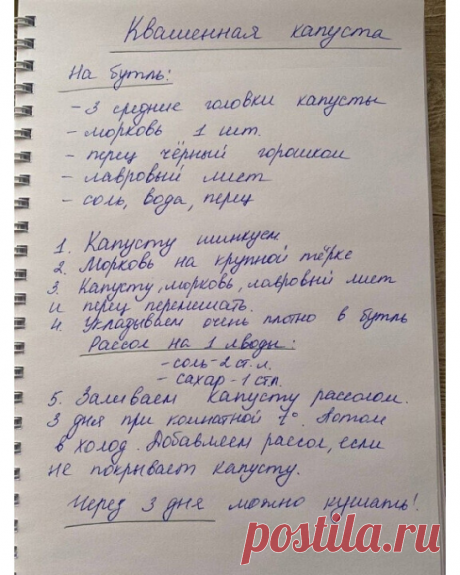 Квашенная капуста
На бутль:
- 3 средние головки капусты
- морковь 1 шт.
- перец чёрный горошком
- лавровый лист
- соль, вода, перец
1. Капусту шинкуем
2. Морковь на крупной тёрке
3. Капусту, морковь, лавровый лист
и перец перемешать.
4. Укладываем очень плотно в бутль
Рассол на 1 л воды:
- соль - 2 ст. л.
- сахар - 1 ст л.
5. Заливаем капусту рассолом.
3 дня при комнатной t°. Потом
в холод. Добавляем рассол, если
не покрывает капусту.
Через 3 дня можно кушать!
postila.ru